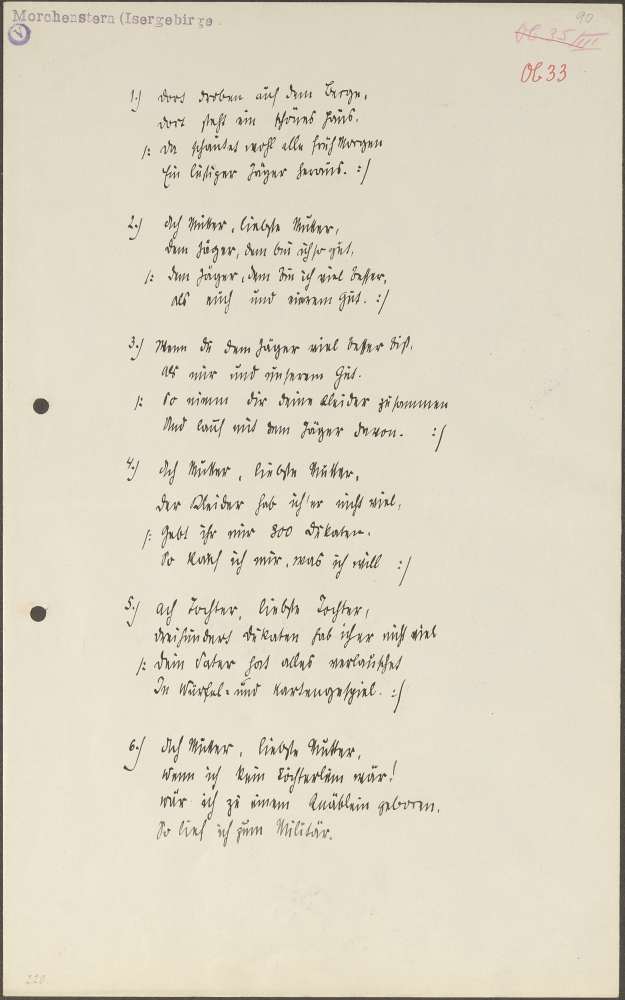 Morchenstern (Isergebirge.
V
90
Ob 35/III
Ob 33
1.) Dort droben auf dem Berge,
Dort steht ein schönes Haus.
/: Da schautet wohl alle früh Morgen
Ein lustiger Jäger heraus. :/
2.) Ach Mutter, liebste Mutter,
Dem Jäger, dem bin ich so gut,
/: Dem Jäger, dem bin ich viel besser,
als euch und eurem Gut. :/
3.) Wenn du dem Jäger viel besser bist,
Als mir und unserem Gut.
/: So nimm dir deine Kleider zusammen
Und lauf mit dem Jäger davon. :/
4.) Ach Mutter, liebste Mutter,
Der Kleider hab ich er nicht viel,
/: Gebt ihr mir 300 Dukaten,
So kauf ich mir, was ich will :/
5.) Ach Tochter, liebste Tochter,
dreihundert Dukaten hab ich er nicht viel
/: Dein Vater hat alles verlauschet
In Würfel- und Kartengespiel. :/
6.) Ach Mutter, liebste Mutter,
Wenn ich kein Töchterlein wär!
Wär ich zu einem Knäblein geboren,
So lief ich zum Militär.
220